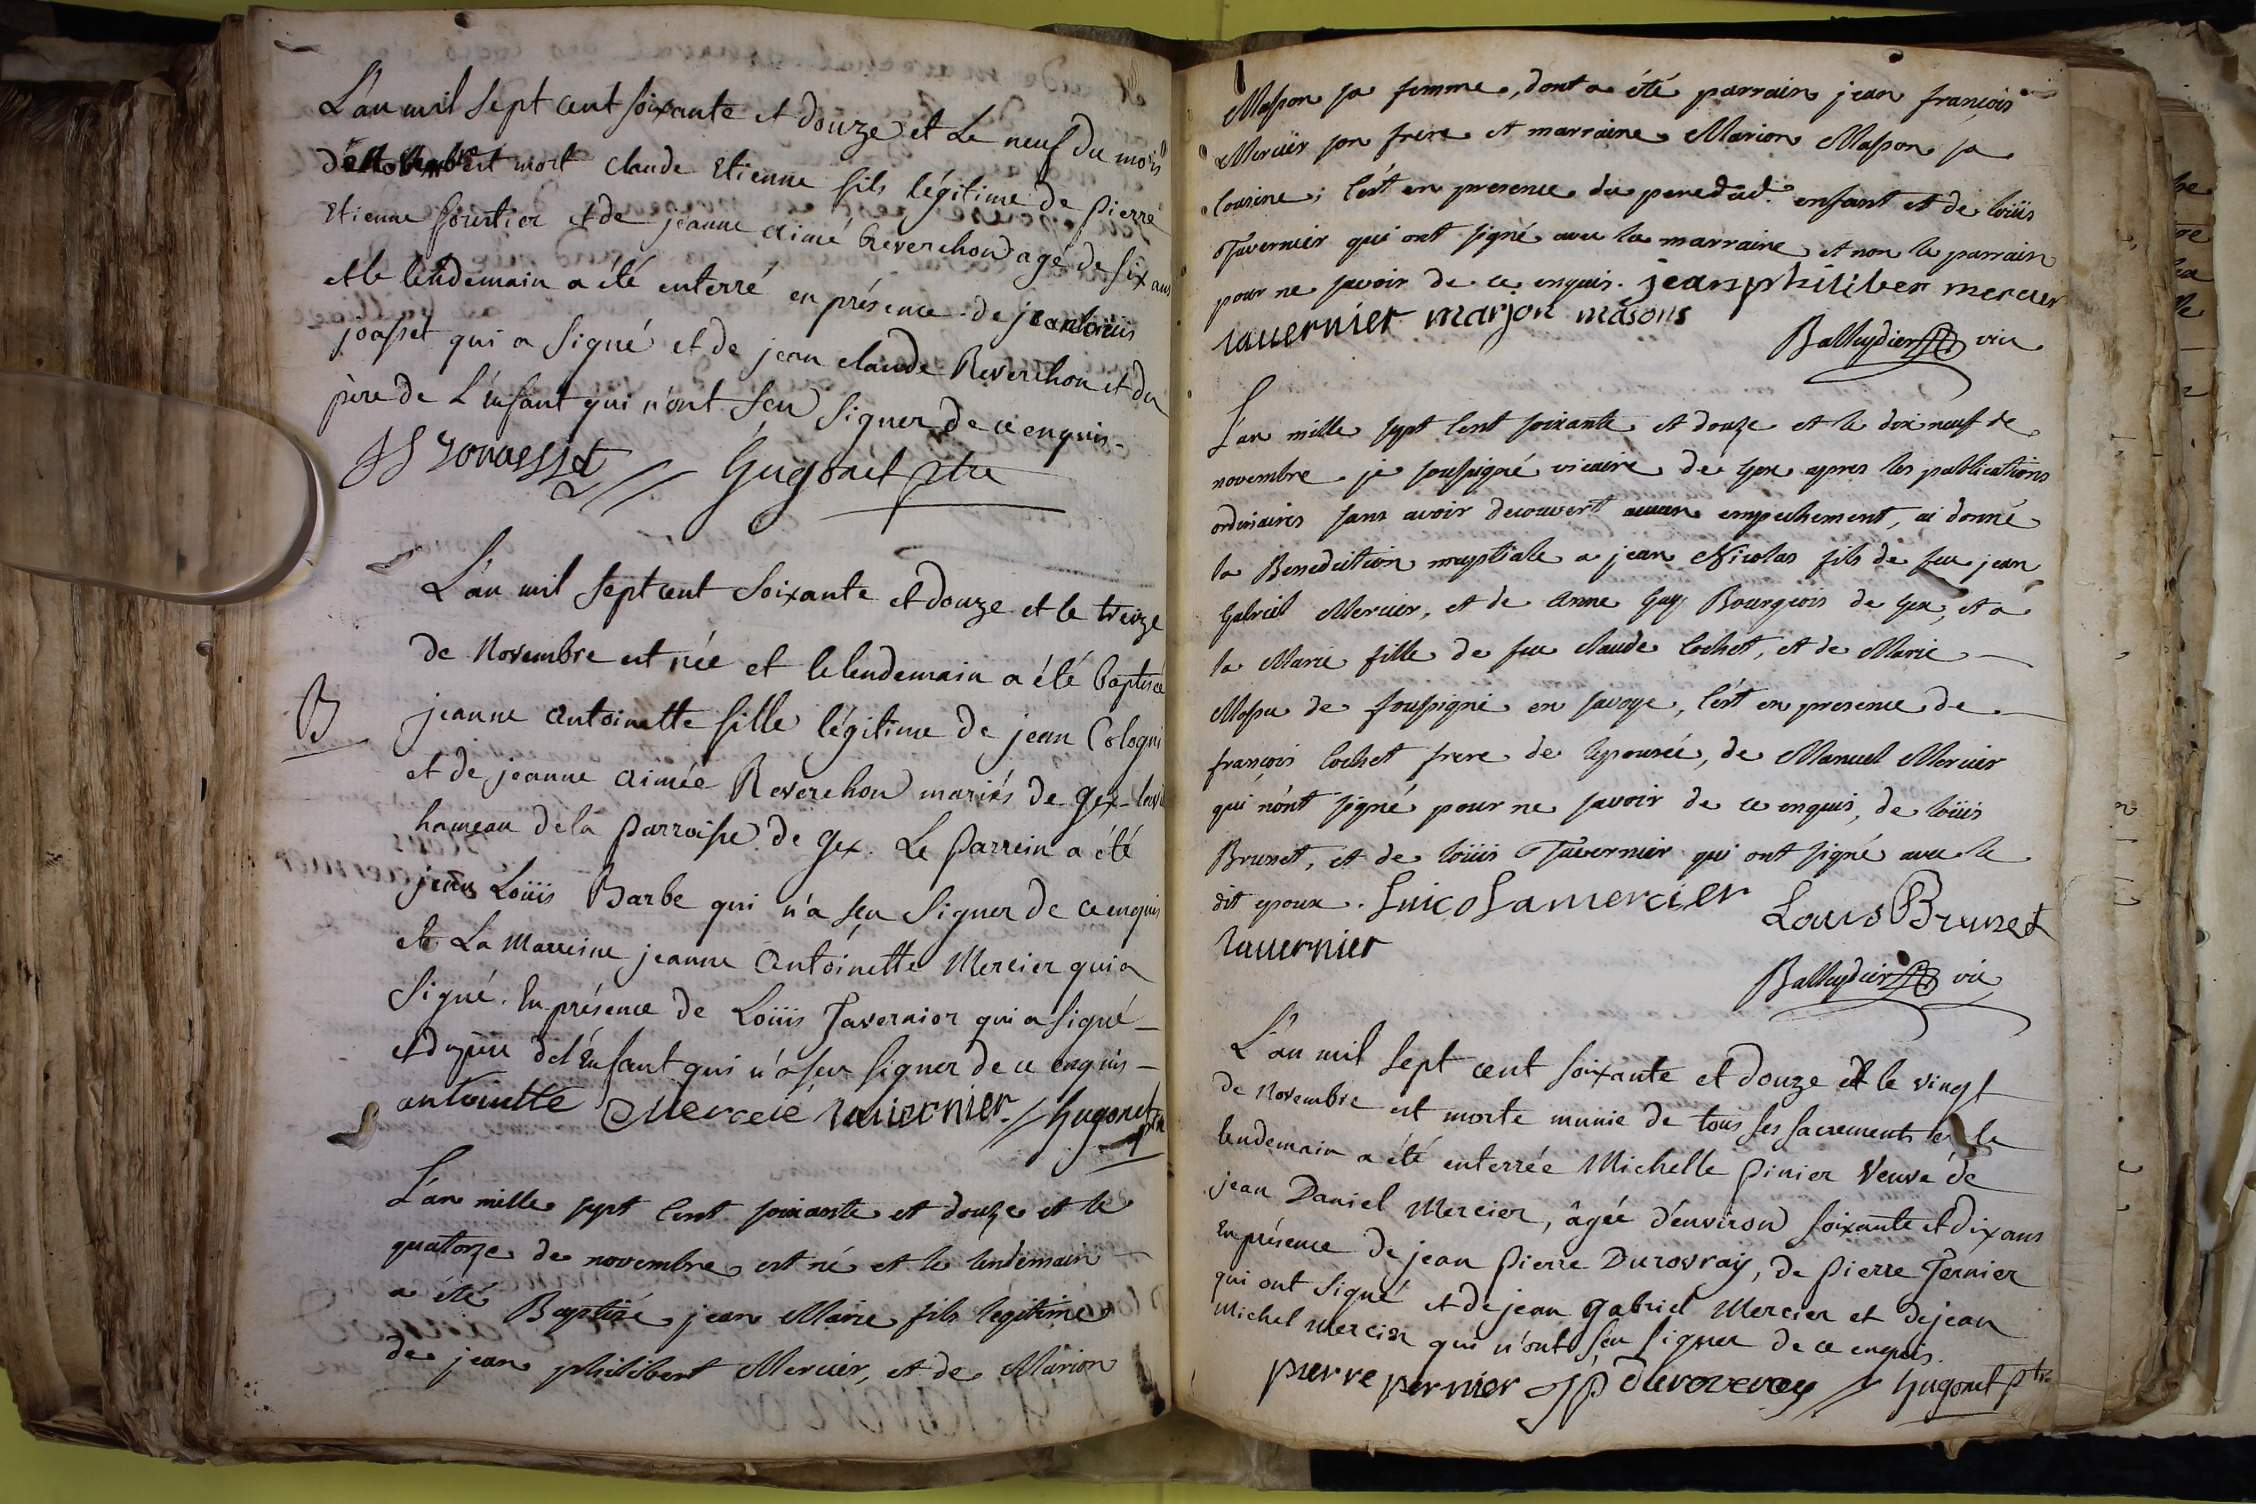 L'an mil sept cent soixante et douze et le neuf du mois
de Novembre est mort claude Etienne fils légitime de pierre
Etienne fourtier et de jeanne aimé Reverchon agé de six ans
et le lendemain a été enterré en présence de jean loüis
joasset qui a signé et de jean claude Reverchon et du
père de L'enfant qui n'ont sçu signer de ce enquis -
Hugonet ptre
L'an mil sept cent soixante et douze et le treize
de Novembre est née et le lendemain a été baptisée
B
jeanne antoinette fille légitime de jean Cologni
et de jeanne aimée Reverchon mariés de gex-
hameau de la parroisse de gex. Le parrein a été
jean Loüis Barbe qui n'a sçu signer de ce enquis
et La Marreine jeanne antoinette Mercier qui a
signé. En présence de Loüis Tavernier qui a signé -
et du père de l'enfant qui n'a sçu signer de ce enquis -
antoinette Mercié tauernier // hugonet ptre
L'an mille sept cent soixante et douze et le
quatorze de novembre est né et le lendemain
a été Baptisé jean Marie fils légitime
de jean philibert Mercier, et de Marion
Masson sa femme, dont a été parrain jean françois
Mercier son frere et marraine Marion Masson sa
cousine ; c'est en presence du pere dud. enfant et de loüis
Tavernier qui ont signé avec la marraine et non le parrain
pour ne savoir de ce enquis. jean philiber mercier
tauernier marjon masons
Balleydier vic
L'an mille sept cent soixante et douze et le dix neuf de
novembre je soussigné vicaire de gex apres les publications
ordinaires sans avoir decouvert aucun empechement, ai donné
la Benediction nuptiale a jean Nicolas fils de feu jean
Gabriel Mercier, et de anne Guy Bourgeois de gex, et a
la Marie fille de feu claude Cochet, et de Marie -
Mossu de foussigni en savoye, c'est en presence de -
françois Cochet frere de lepousée, de Manuel Mercier
qui n'ont signé pour ne savoir de ce enquis, de loüis
Brunet, et de loüis Tavernier qui ont signé avec le
dit epoux. Louis Brunet
tauernier
Balleydier vic
L'an mil sept cent soixante et douze et le vingt
de Novembre est morte munie de tous ses sacrements et le
lendemain a été enterrée Michelle pinier veuve de
jean Daniel Mercier, âgée d'environ soixante et dix ans
En présence de jean pierre Durovray, de pierre Pernier
qui ont signé et de jean gabriel Mercier et de jean
Michel Mercier qui n'ont sçu signer de ce enquis.
pierre pernier JP duroveray // hugonet ptre